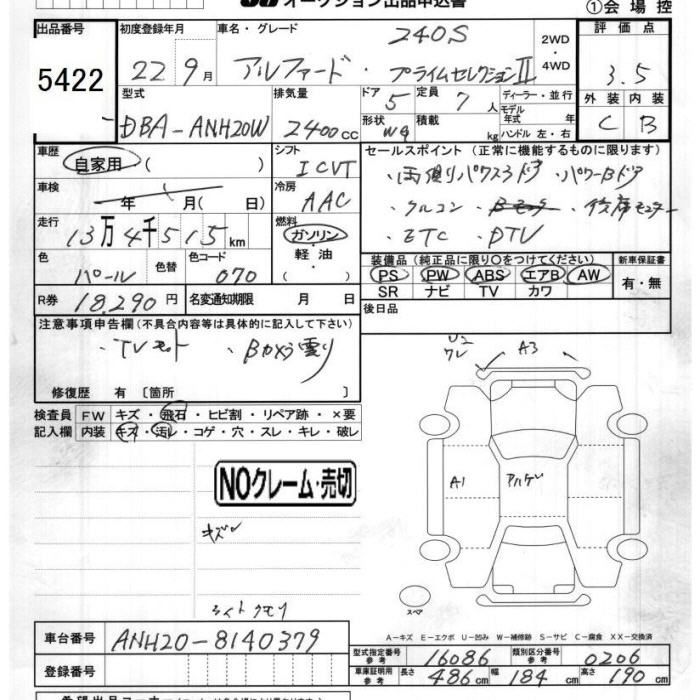 オークション出品申込書
①会場控
出品番号
5422
初度登録年月
22 9月
車名・グレード
240S
アルファード・プライムセレクションⅡ
2WD・4WD
評価点
3.5
外装 内装
C B
型式
DBA-ANH20W
排気量
2400cc
ドア 5
形状 Wg
定員 7人
積載 kg
ディーラー・並行
モデル
年式 年
ハンドル 左・右
車歴
自家用 ( )
車検
年 月(日)
走行
13万4千515km
色
パール
色替
色コード
070
R券 18,290円
名変通知期限 月 日
シフト
ICVT
冷房
AAC
燃料
ガソリン
軽油
( )
セールスポイント (正常に機能するものに限ります)
・両側パワスラドア ・パワーBドア
・クルコン ・Bモニター ・後席モニター
・ETC ・DTV
装備品 (純正品に限り○をつけてください)
PS PW ABS エアB AW
SR ナビ TV カワ
新車保証書
有・無
後日品
注意事項申告欄 (不具合内容等は具体的に記入して下さい)
・TVセット ・Bカメラ曇り
修復歴 有 〔箇所 〕
検査員記入欄
FW キズ・飛石・ヒビ割・リペア跡・×要
内装 キズ・汚レ・コゲ・穴・スレ・キレ・破レ
NOクレーム・売切
キズ
ライトクモリ
U2
ワレ
A3
A1
スペア
A-キズ E-エクボ U-凹み W-補修跡 S-サビ C-腐食 XX-交換済
車台番号
ANH20-8140379
登録番号
型式指定番号 参考 16086
類別区分番号 参考 0206
車庫証明用 参考 長さ 486cm 幅 184cm 高さ 190cm